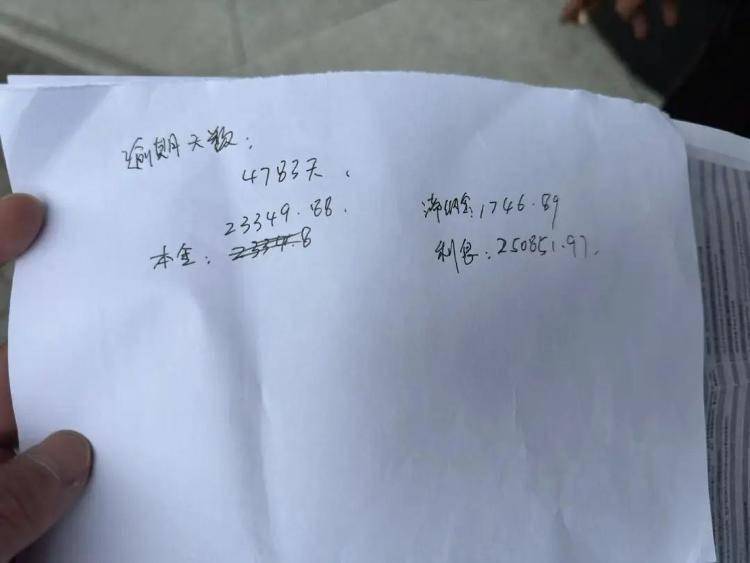 逾期天数：
4783天.
23349.88.
本金：23349.8
滞纳金：1746.89
利息：250851.97.